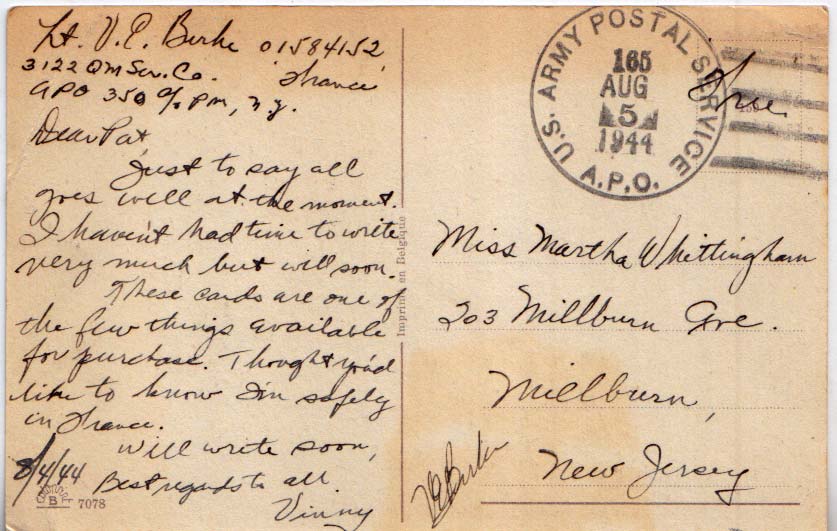 Lt. V. C. Burke 01584152
3122 QM Serv. Co. France
APO 350 c/o PM, N.Y.
Dear Pat,
Just to say all
goes well at the moment.
I haven't had time to write
very much but will soon.
These cards are one of
the few things available
for purchase. Thought you'd
like to know I'm safely
in France.
Will write soon,
8/4/44 Best regards to all
Vinny
B 7078
Imprimé en Belgique
U.S. ARMY POSTAL SERVICE
165
AUG
5
1944
A.P.O.
Free
Miss Martha Whittingham
203 Millburn Ave.
Millburn,
New Jersey
VCBurke